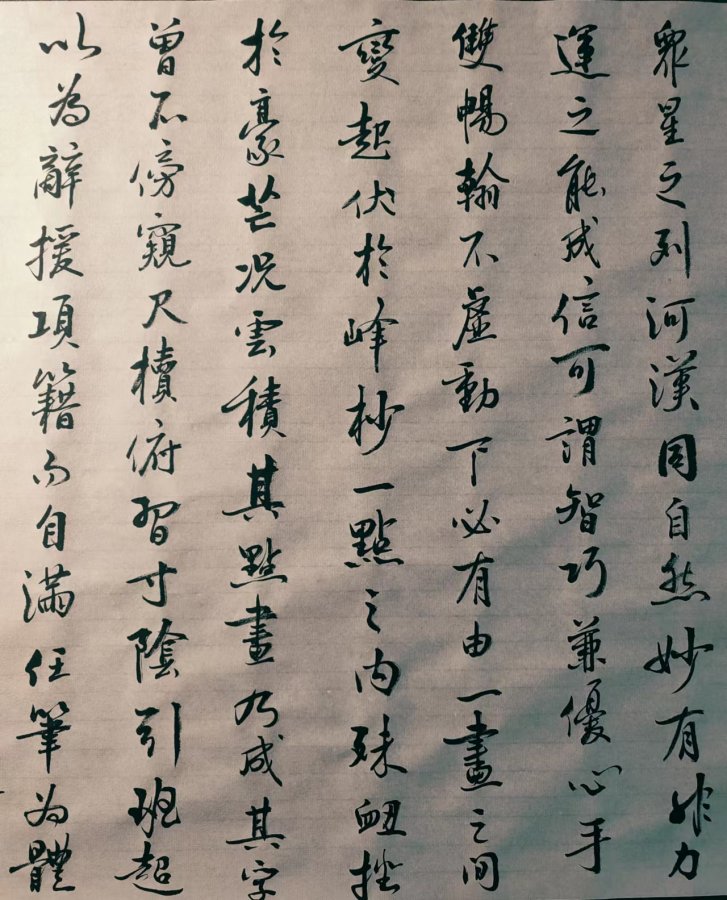 眾星之列河漢同自然妙有非力
運之能成信可謂智巧兼優心手
雙暢翰不虛動下必有由一畫之間
變起伏於峰杪一點之內殊衄挫
於豪芒況雲積其點畫乃成其字
曾不傍窺尺櫝俯習寸陰引班超
以為辭援項籍而自滿任筆為體